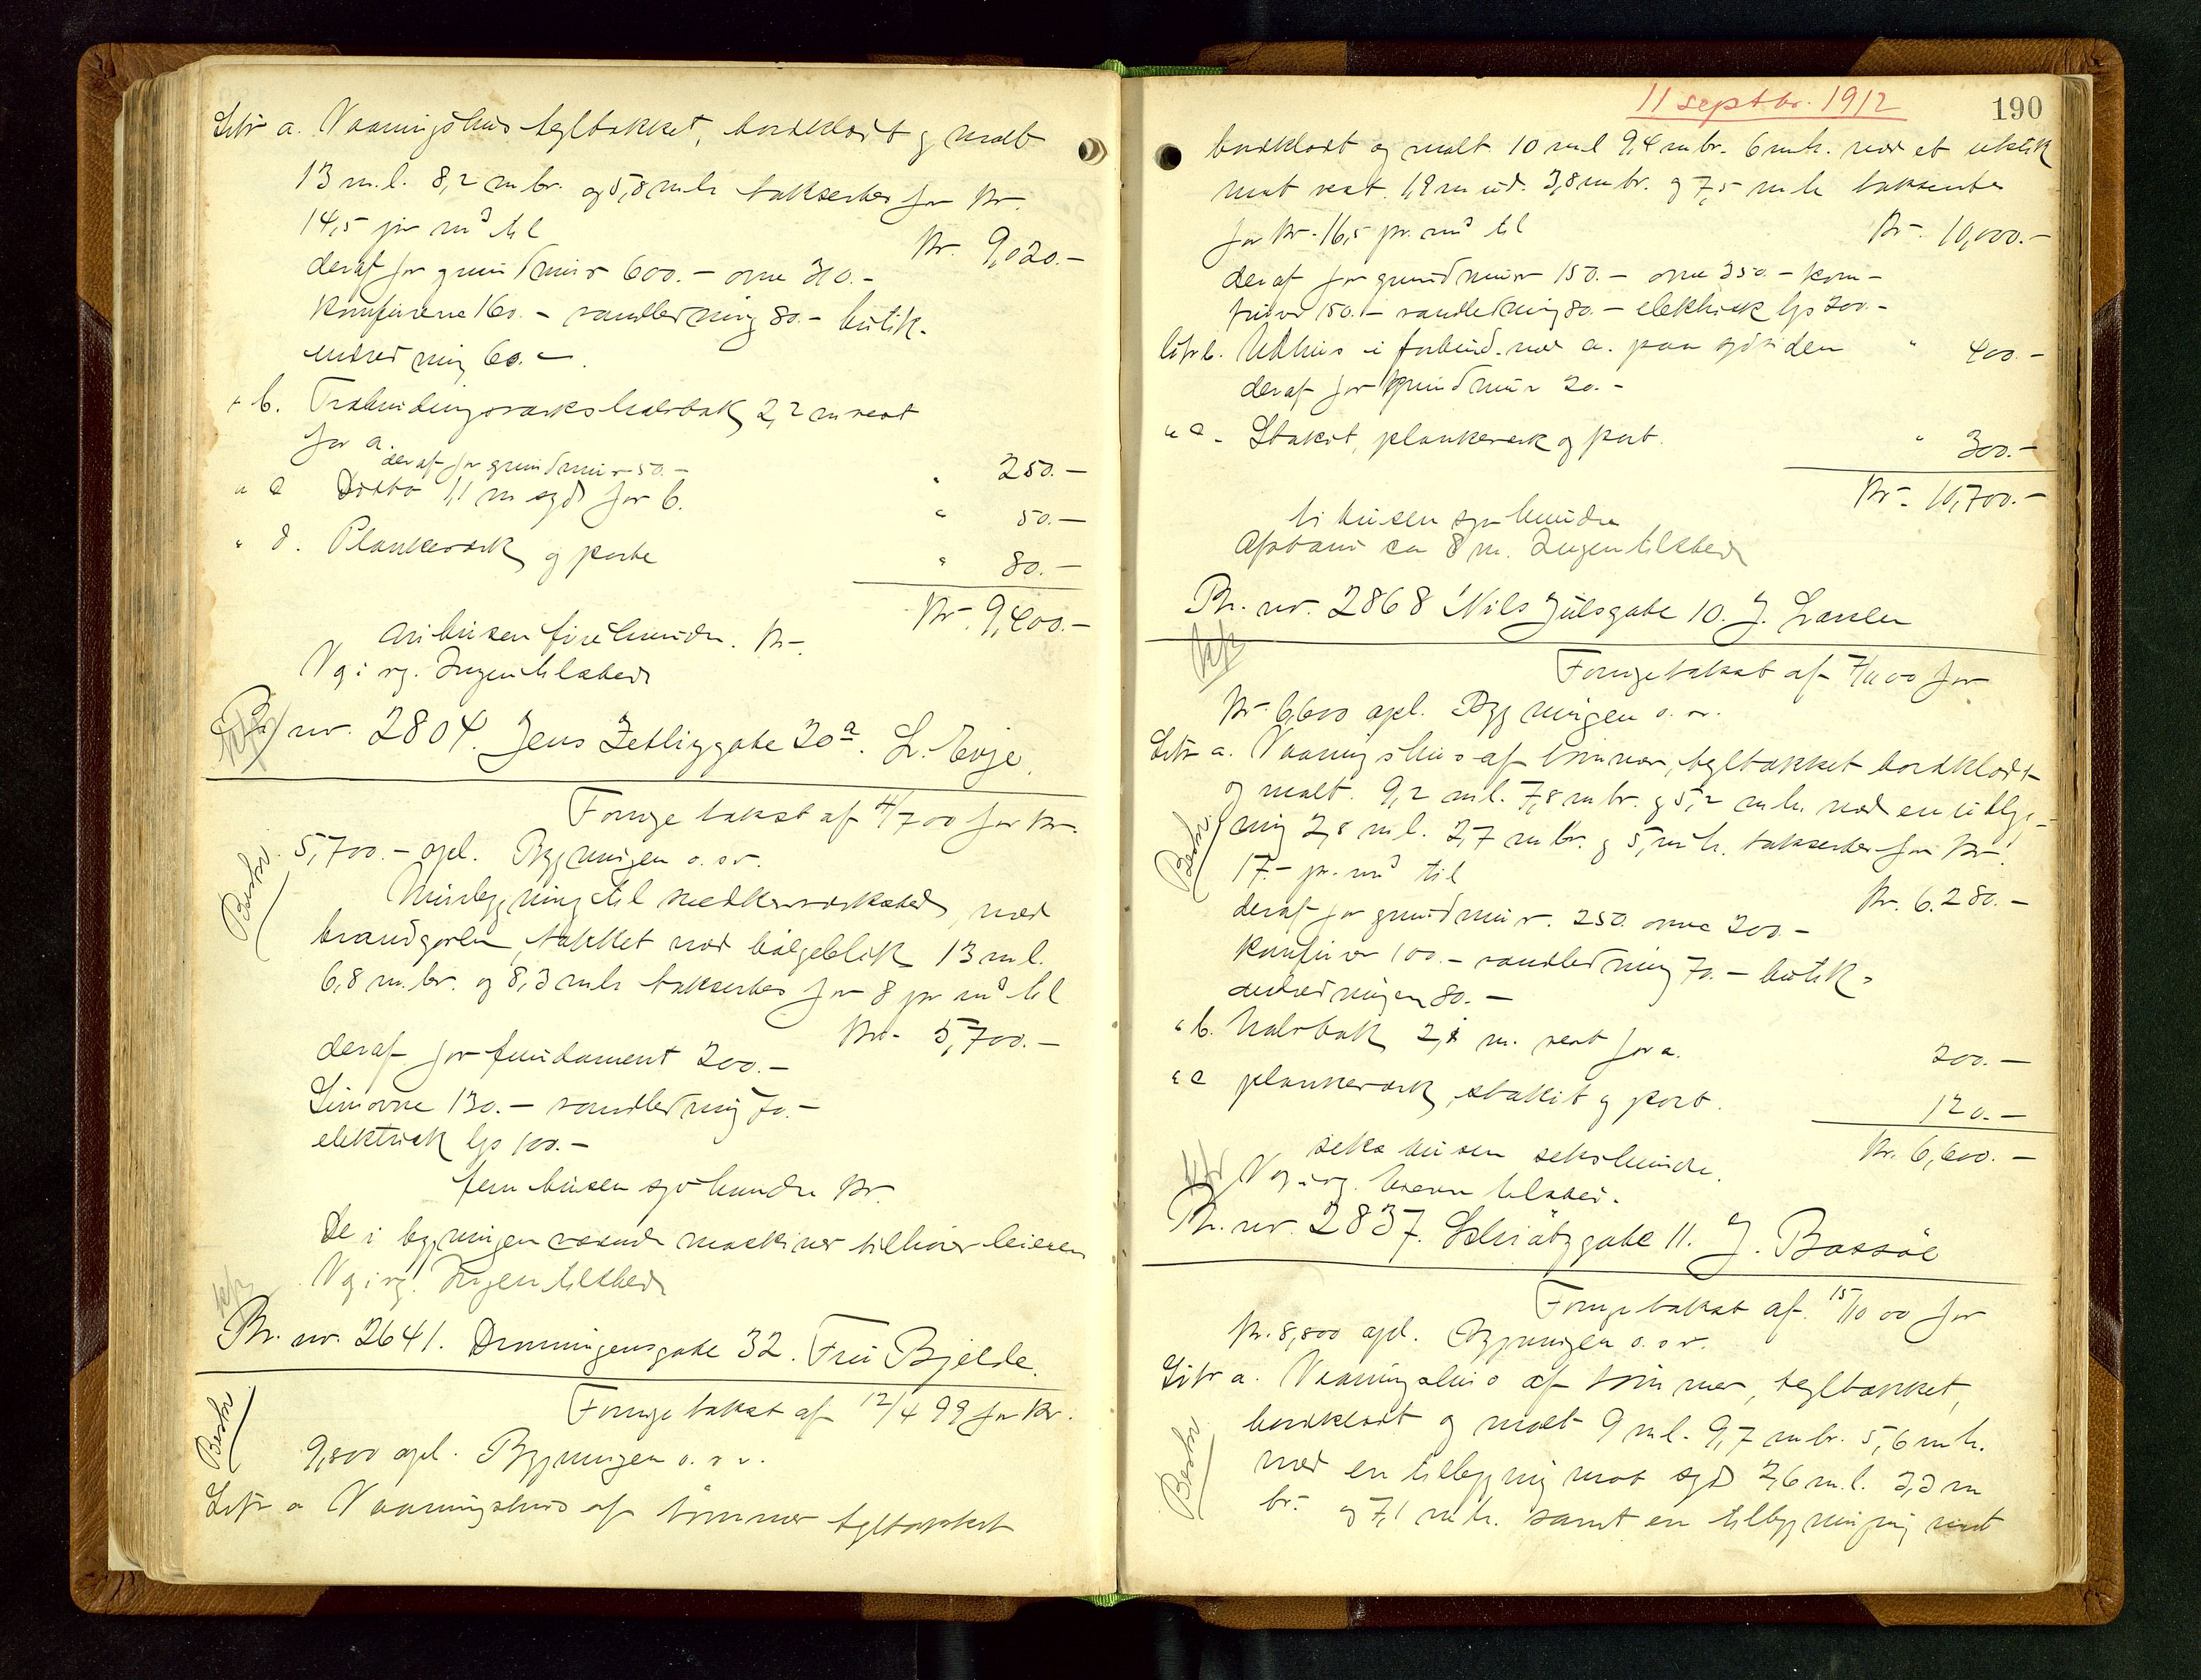 Litr a. Vaaningshus tegltækket, bordklædt og malt
13 m.l. 8,2 m br. og 5,8 m h taksertes for Kr.
14,5 pr m³ til
Kr. 9,020.-
deraf for grundmur 600.- ovne 310.-
komfurene 160.- vandledning 80.- butik-
indredning 60.-
" b. Tilbygning halvtak 2,2 m vest
for a.
deraf for grundmur 50.-
" 250.-
" c Ditto 1,1 m syd for b.
" 50.-
" d. Plankeværk og porte
" 80.-
Kr. 9,400.-
Ni tusen fire hundre. Kr.
V g i vg. Ingen tilstede
Br. nr. 2804. Jens Zetlitzgate 20ª. L. Evje.
Forrige takst af 4/7 00 for Kr.
5,700.- opl. Bygningen o.s.v.
Beskr.
Murbygning til snedkerværksted, med
brandgavler, tækket med bølgeblik 13 m l.
6,8 m. br. og 8,3 m h takseertes for 8 pr m³ til
Kr. 5,700.-
deraf for fundament 200.-
Limovne 130.- vandledning 70.-
elektrisk lys 100.-
fem tusen syv hundre Kr.
De i bygningen værende maskiner tilhører leieren
V g i vg. Ingen tilstede
Br. nr. 2641. Dronningensgate 32. Fru Bjelde.
Forrige takst af 12/4 99 for Kr.
Beskr
9,800 opl. Bygningen o.s.v.
Litr a Vaaningshus af tømmer tegltækket
11 septbr. 1912
190
bordklædt og malt 10 m l 9,4 m br. 6 m h. med et utstik
mot vest. 1,9 m ud. 3,8 m br. og 7,5 m h takseertes
for Kr. 16,5 pr. m³ til
Kr. 10,000.-
deraf for grundmur 150.- ovne 350.- kom-
furer 150.- vandledning 80.- elektrisk lys 200.-
litr b. Udhus i forbind. med a. paa sydsiden
" 400.-
deraf for grundmur 20.-
" c. Stakit, plankeverk og port.
" 300.-
Kr. 10,700.-
ti tusen syv hundre
Afstand ca 8 m. Ingen tilsted
Br. nr. 2868 Nils Juelsgate 10. J. Larsen
Forrige takst af 7/11 00 for
Kr. 6,600 opl. Bygningen o.s.v.
Litr a. Vaaningshus af tømmer, tegltækket bordklædt
og malt. 9,2 m l. 7,8 m br. og 5,2 m h. med en udbyg-
Beskr.
ning 2,8 m l. 2,7 m br. og 5, m h. takseertes for Kr.
17.- pr. m³ til
Kr. 6,280.-
deraf for grundmur. 250. ovne 200.-
komfurer 100.- vandledning 70.- butik-
indredningen 80.-
" b. Halvtak 2,1 m. vest for a.
200.-
" c plankeværk, stakit og port.
120.-
Kr. 6,600.-
seks tusen sekshundre.
V g i vg. tilsted.
Br. nr. 2837. Schiøtzgate 11. J. Bassøe
Forrige takst af 15/10 00 for
Kr. 8,800 opl. Bygningen o.s.v.
Litr a. Vaaningshus af tømmer, tegltækket,
bordklædt og malt 9 m l. 9,7 m br. 5,6 m h.
Beskr
med en tilbygning mot syd 2,6 m. l. 3,3 m
br. og 7,1 m h. samt en tilbygning mot